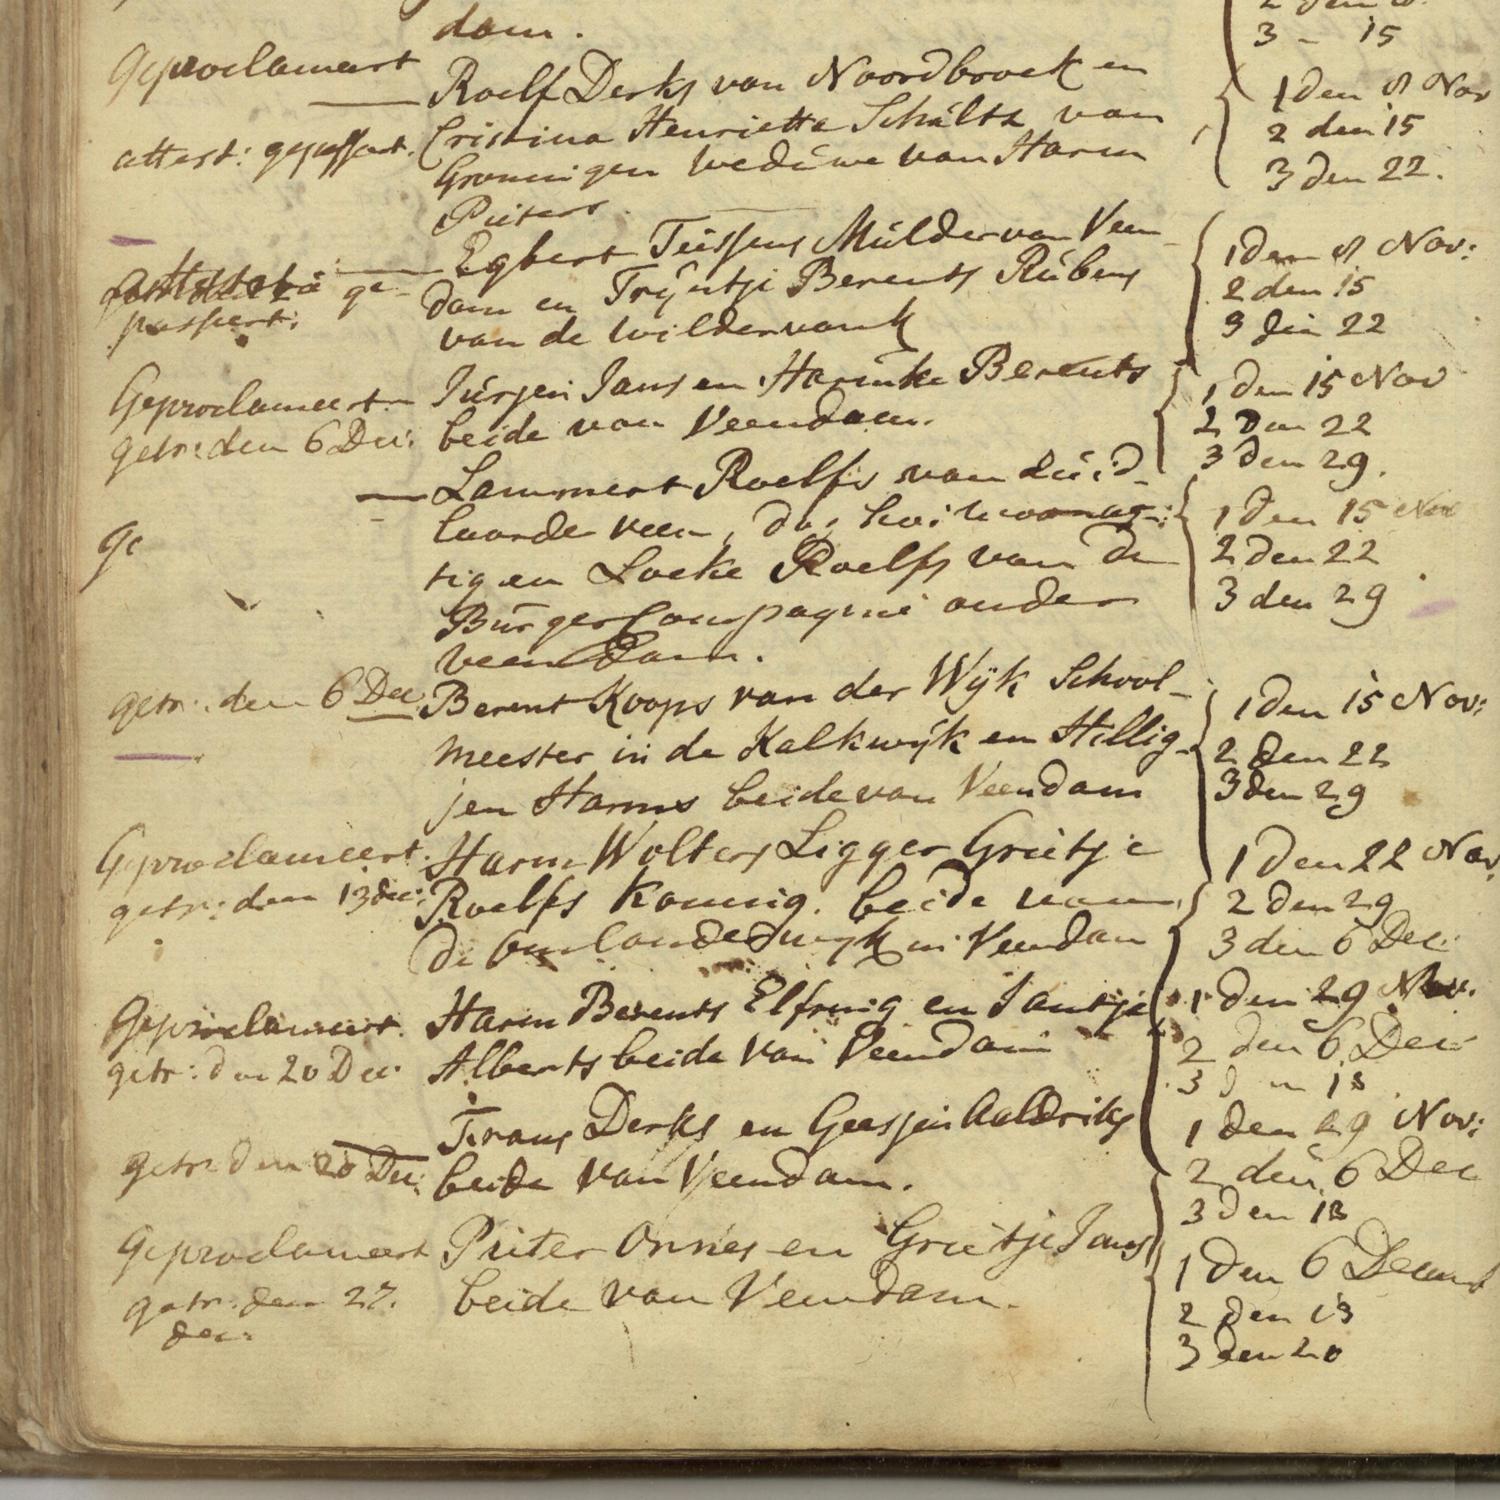 dam.
3 - 15
Geproclameert
Roelf Derks van Noordbroek en
1 den 8 Nov
attest: gepassert.
Cristina Henrietta Schültz van
2 den 15
Groningen weduwe van Harm
3 den 22.
Pieters.
Egbert Teissens Mülder van Veen-
1 den 8 Nov:
ge-
dam en Trÿntje Berents Rübens
2 den 15
passert:
van de wildervank
3 den 22
Geproclameert
Jürjen Jans en Harmke Berents
1 den 15 Nov
getr: den 6 Dec:
beide van Veendam.
2 Den 22
3 den 29.
Lammert Roelfs van Züid-
laarder veen,
1 den 15 Nov
ge
tig en Loeke Roelfs van de
2 den 22
Bürger Compagnie onder
3 den 29
veendam.
getr: den 6 Dec
Berent Koops van der Wÿk School-
1 den 15 Nov:
meester in de Kalkwÿk en Hillig-
2 den 22
jen Harms beide van Veendam
3 den 29
Geproclameert.
Harm Wolters Ligger Grietje
1 den 22 Nov.
getr: den 13 dec:
Roelfs Konnig. beide van
2 den 29
de Ommelanderwyk in Veendam
3 den 6 Dec:
Geproclameert.
Harm Berents Elfring en Jantje
1 den 29 Nov.
getr: den 20 Dec:
Alberts beide van Veendam
2 den 6 Dec:
3 den 13
Frans Derks en Geesjen Aaldriks
1 den 29 Nov:
getr: den 20 Dec:
beide van Veendam.
2 den 6 Dec
3 den 13
Geproclameert
Pieter Onnes en Grietje Jans
1 den 6 Decemb
getr: den 27.
beide van Veendam.
2 den 13
dec:
3 den 20